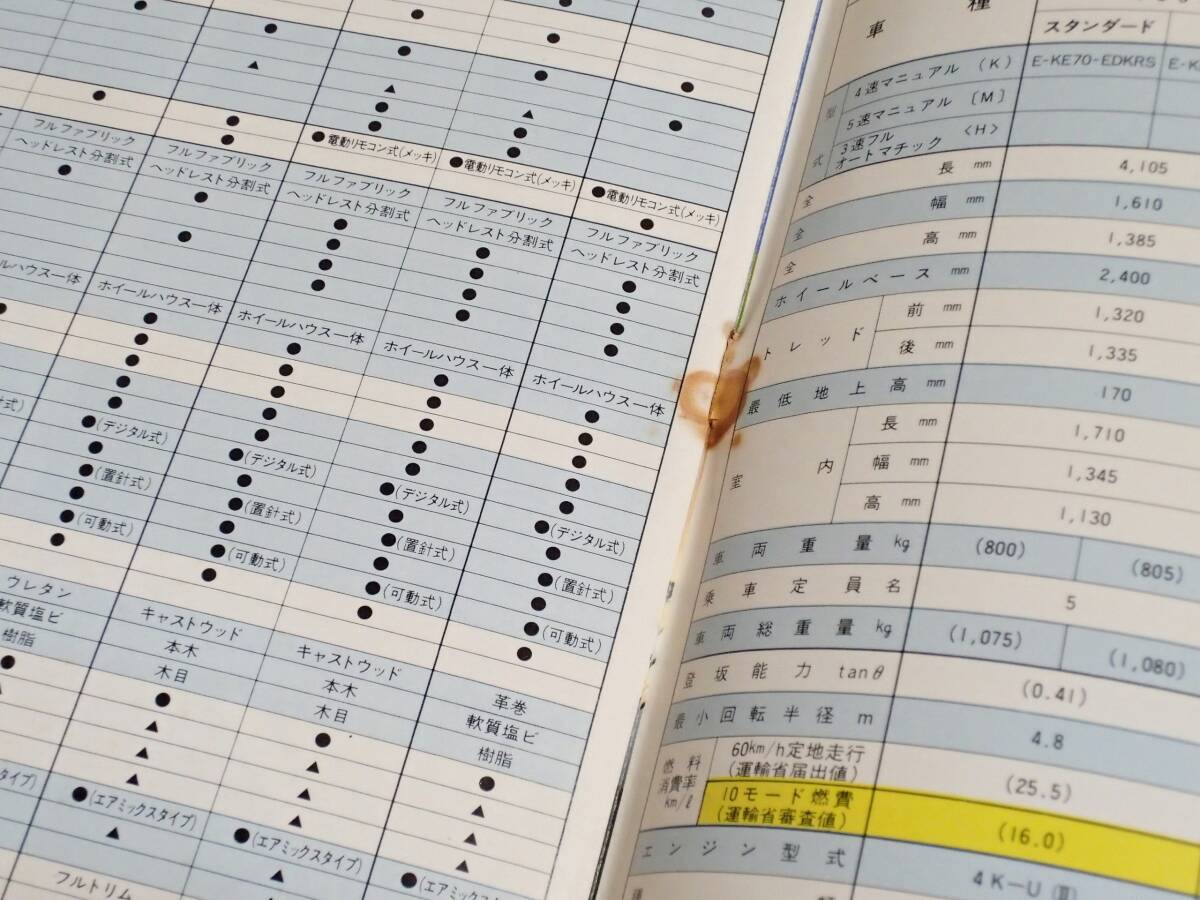 フルファブリック
ヘッドレスト分割式
フルファブリック
ヘッドレスト分割式
●電動リモコン式(メッキ)
フルファブリック
ヘッドレスト分割式
●電動リモコン式(メッキ)
フルファブリック
ヘッドレスト分割式
●電動リモコン式(メッキ)
フルファブリック
ヘッドレスト分割式
ルハウス一体
ホイールハウス一体
ホイールハウス一体
ホイールハウス一体
ホイールハウス一体
針式)
●(デジタル式)
●(デジタル式)
●(デジタル式)
●(デジタル式)
●(置針式)
●(置針式)
●(置針式)
●(置針式)
●(可動式)
●(可動式)
●(可動式)
●(可動式)
ウレタン
軟質塩ビ
樹脂
キャストウッド
本木
木目
キャストウッド
本木
木目
革巻
軟質塩ビ
樹脂
タイプ)
●(エアミックスタイプ)
●(エアミックスタイプ)
●(エアミックス
フルトリム
車 種
スタンダード
型式
4速マニュアル (K) E-KE70-EDKRS E-K
5速マニュアル 〔M〕
3速フル
オートマチック 〈H〉
全長 mm 4,105
全幅 mm 1,610
全高 mm 1,385
ホイールベース mm 2,400
トレッド 前 mm 1,320
後 mm 1,335
最低地上高 mm 170
室内 長 mm 1,710
幅 mm 1,345
高 mm 1,130
車両重量 kg (800) (805)
乗車定員 名 5
車両総重量 kg (1,075) (1,080)
登坂能力 tanθ (0.41)
最小回転半径 m 4.8
燃料
消費率
km/ℓ
60km/h定地走行
(運輸省届出値) (25.5)
10モード燃費
(運輸省審査値) (16.0)
エンジン型式 4K-U(Ⅲ)
種 類